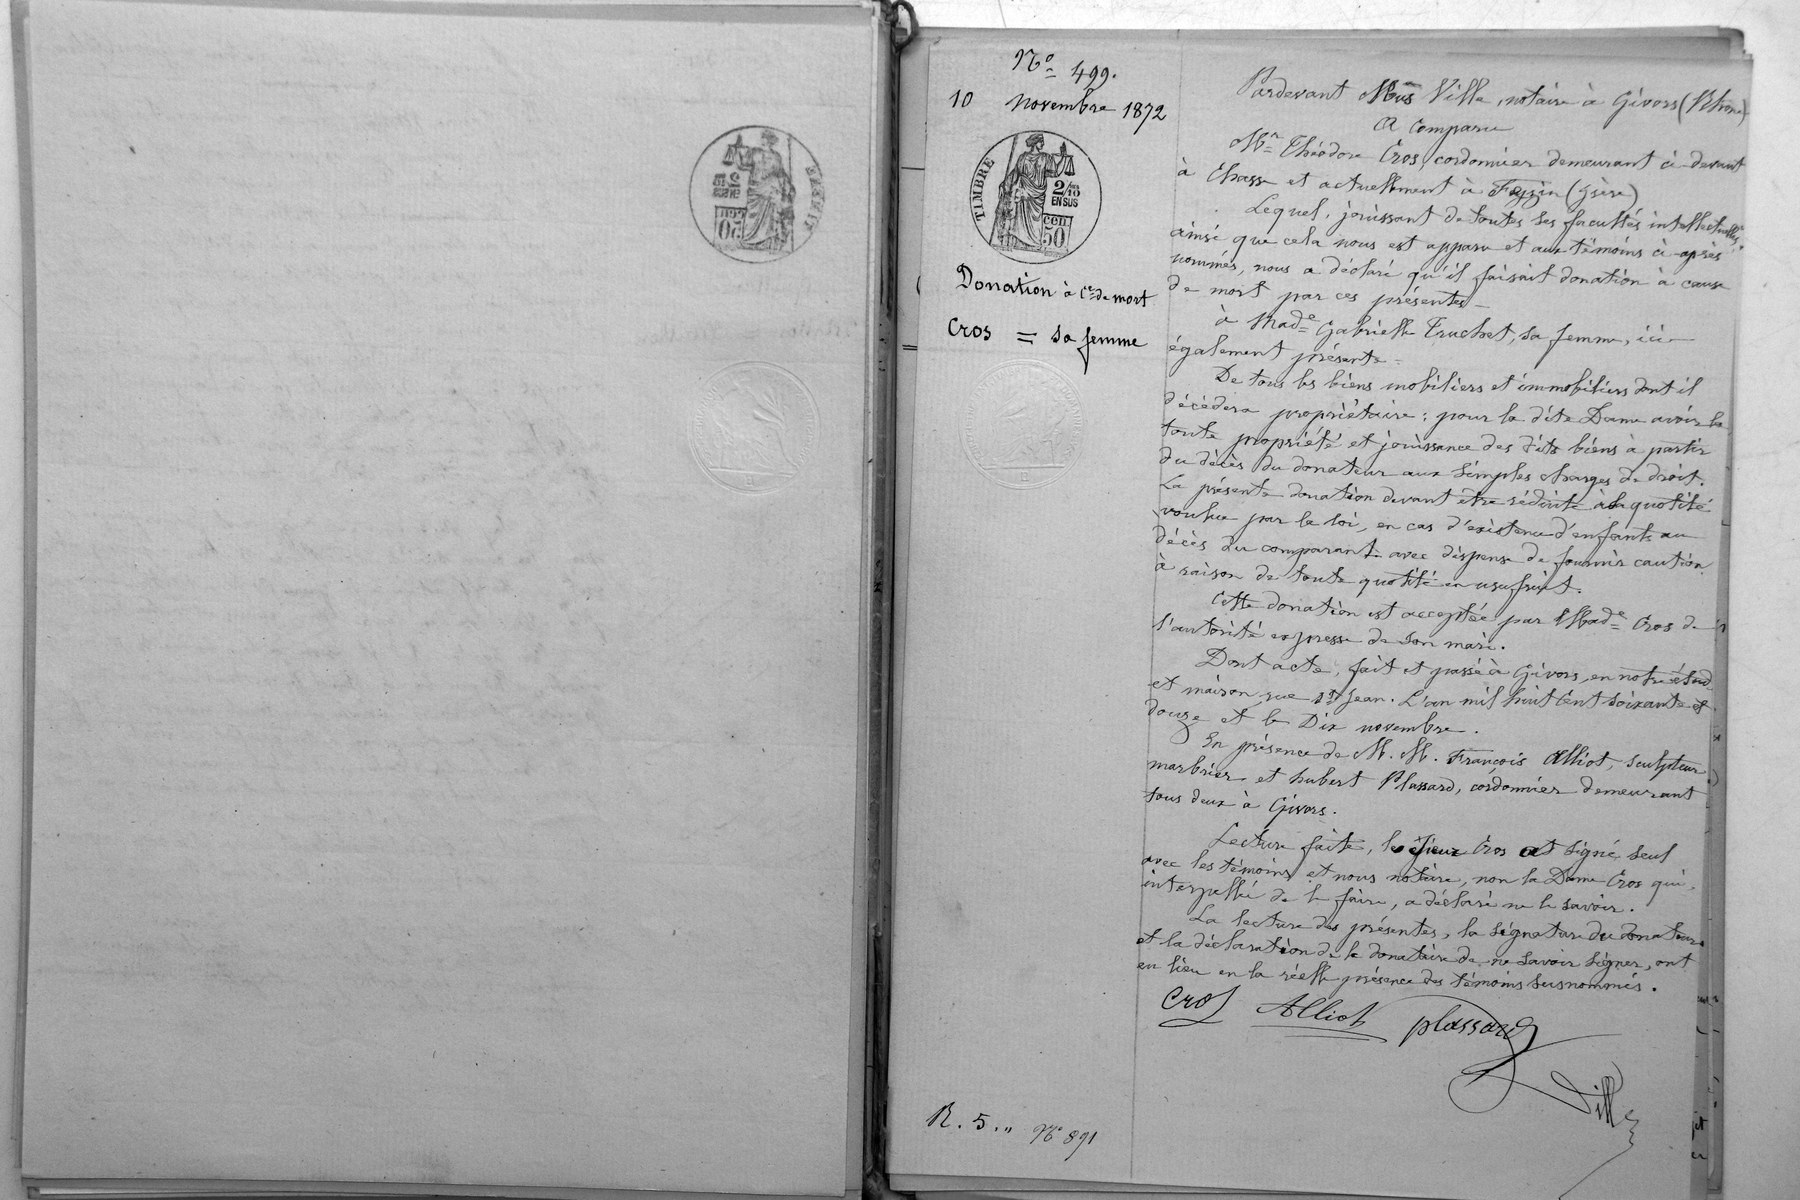 Nº 499.
10 novembre 1872
TIMBRE
2/10
EN SUS
cen
50
Donation à Ce de mort
Cros = sa femme
Pardevant Mus Ville, notaire à Givors (Rhône)
A comparu
Mr Théodore Cros, cordonnier demeurant ci-devant
à Chasse et actuellement à Feyzin (Isère)
Lequel, jouissant de toutes ses facultés intellectuelles
ainsi que cela nous est apparu et aux témoins ci-après
nommés, nous a déclaré qu'il faisait donation à cause
de mort par ces présentes
à Made Gabrielle Truchet, sa femme, ici
également présente
De tous les biens mobiliers et immobiliers dont il
décèdera propriétaire ; pour la dite Dame avoir la
toute propriété et jouissance des dits biens à partir
du décès du donateur aux simples charges de droit.
La présente donation devant être réduite à la quotité
voulue par la loi, en cas d'existence d'enfants au
décès du comparant avec dispense de fournir caution
à raison de toute quotité en usufruit.
Cette donation est acceptée par Made Cros de
l'autorité expresse de son mari.
Dont acte, fait et passé à Givors, en notre étude
et maison rue St Jean. L'an mil huit cent soixante et
douze et le Dix novembre.
En présence de M. M. François Alliot, sculpteur
marbrier et hubert Plassard, cordonnier demeurant
tous deux à Givors.
Lecture faite, le sieur Cros a signé seul
avec les témoins et nous notaire, non la Dame Cros qui,
interpellée de le faire, a déclaré ne le savoir.
La lecture des présentes, la signature du donateur
et la déclaration de la donataire de ne savoir signer, ont
eu lieu en la réelle présence des témoins susnommés.
Cros Alliot plassard
Ville
R. 5.. Nº 891